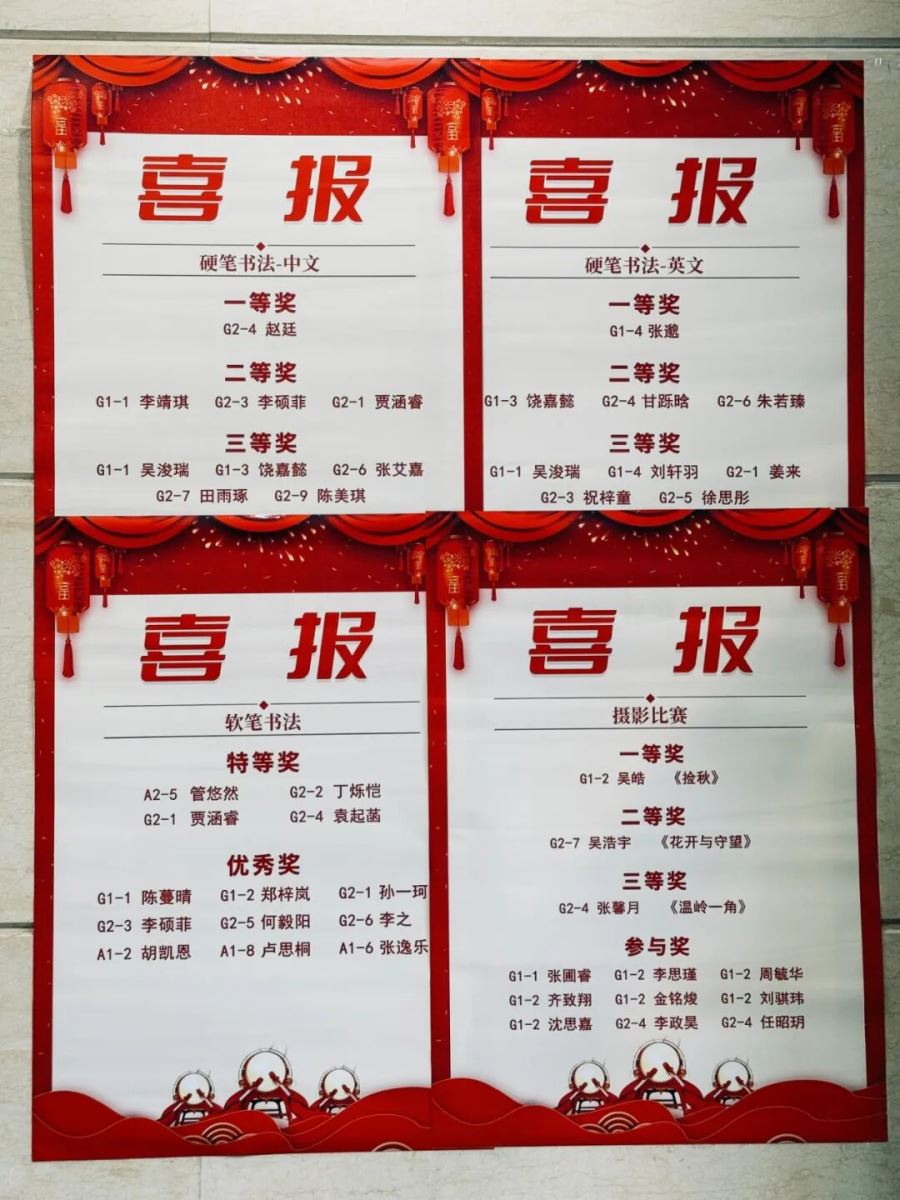 喜报
硬笔书法-中文
一等奖
G2-4 赵廷
二等奖
G1-1 李靖琪 G2-3 李硕菲 G2-1 贾涵睿
三等奖
G1-1 吴浚瑞 G1-3 饶嘉懿 G2-6 张艾嘉
G2-7 田雨琢 G2-9 陈美琪
喜报
硬笔书法-英文
一等奖
G1-4 张邈
二等奖
G1-3 饶嘉懿 G2-4 甘跞晗 G2-6 朱若臻
三等奖
G1-1 吴浚瑞 G1-4 刘轩羽 G2-1 姜来
G2-3 祝梓童 G2-5 徐思彤
喜报
软笔书法
特等奖
A2-5 管悠然 G2-2 丁烁恺
G2-1 贾涵睿 G2-4 袁起菡
优秀奖
G1-1 陈蔓晴 G1-2 郑梓岚 G2-1 孙一珂
G2-3 李硕菲 G2-5 何毅阳 G2-6 李之
A1-2 胡凯恩 A1-8 卢思桐 A1-6 张逸乐
喜报
摄影比赛
一等奖
G1-2 吴皓 《捡秋》
二等奖
G2-7 吴浩宇 《花开与守望》
三等奖
G2-4 张馨月 《温岭一角》
参与奖
G1-1 张圃睿 G1-2 李思瑾 G1-2 周毓华
G1-2 齐致翔 G1-2 金铭焌 G1-2 刘骐玮
G1-2 沈思嘉 G2-4 李政昊 G2-4 任昭玥